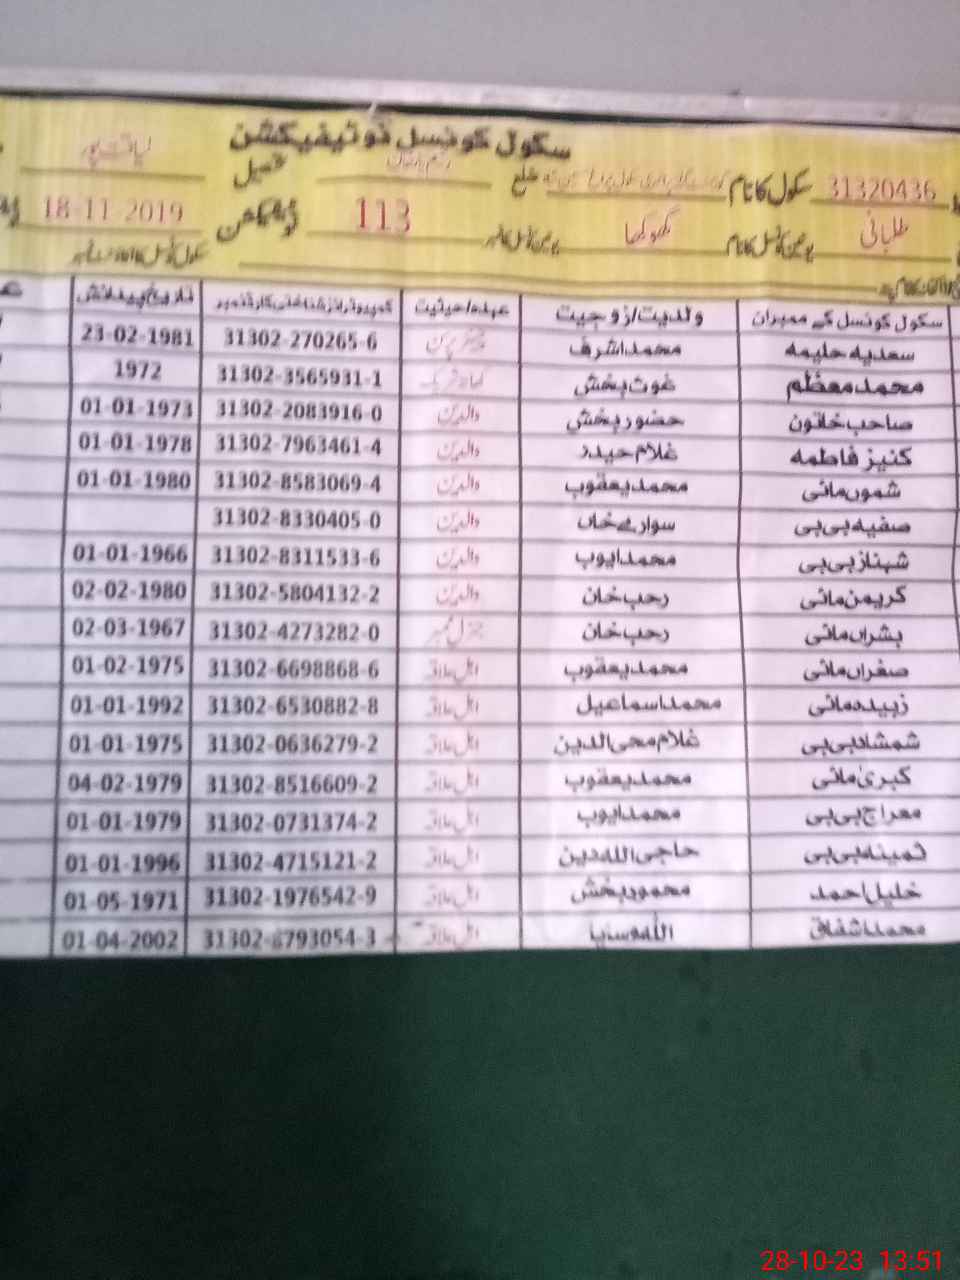 سکول کونسل نوٹیفیکیشن
31320436 سکول کا نام ضلع رحیم یار خان تحصیل لیاقت پور
طلبانی یونین کونسل کا نام گھوکھا یونین کونسل کا نمبر 113 نوٹیفکیشن 18-11-2019
سکول کونسل کے ممبران ولدیت/زوجیت عہدہ/حیثیت کمپیوٹرائزشناختی کارڈنمبر تاریخ پیدائش
سعدیہ حلیمہ محمد اشرف 31302-270265-6 23-02-1981
محمد معظم غوث بخش 31302-3565931-1 1972
صاحب خاتون حضور بخش والدین 31302-2083916-0 01-01-1973
کنیز فاطمہ غلام حیدر والدین 31302-7963461-4 01-01-1978
شموں مائی محمد یعقوب والدین 31302-8583069-4 01-01-1980
صفیہ بی بی سوارے خاں والدین 31302-8330405-0
شہناز بی بی محمد ایوب والدین 31302-8311533-6 01-01-1966
کریمن مائی رحب خان والدین 31302-5804132-2 02-02-1980
بشراں مائی رحب خان جنرل ممبر 31302-4273282-0 02-03-1967
صغراں مائی محمد یعقوب اہل علاقہ 31302-6698868-6 01-02-1975
زبیدہ مائی محمد اسماعیل اہل علاقہ 31302-6530882-8 01-01-1992
شمشاد بی بی غلام محی الدین اہل علاقہ 31302-0636279-2 01-01-1975
کبریٰ مائی محمد یعقوب اہل علاقہ 31302-8516609-2 04-02-1979
معراج بی بی محمد ایوب اہل علاقہ 31302-0731374-2 01-01-1979
ثمینہ بی بی حاجی اللہ دین اہل علاقہ 31302-4715121-2 01-01-1996
خلیل احمد محمود بخش اہل علاقہ 31302-1976542-9 01-05-1971
محمد اشفاق اللہ وسایا اہل علاقہ 31302-8793054-3 01-04-2002
28-10-23 13:51